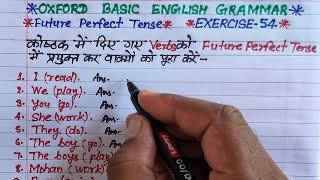 *OXFORD BASIC ENGLISH GRAMMAR*
*Future Perfect Tense *EXERCISE-54*
कोष्ठक में दिए गए Verbs को Future Perfect Tense
में प्रयुक्त कर वाक्यों को पूरा करें:-
1. I (read). Ans-
2. We (play). Ans-
3. You (go). Ans-
4. She (work). Ans-
5. They (do). Ans-
6. The boy (go). Ans-
7. The boys (play)
8. Mohan (work)